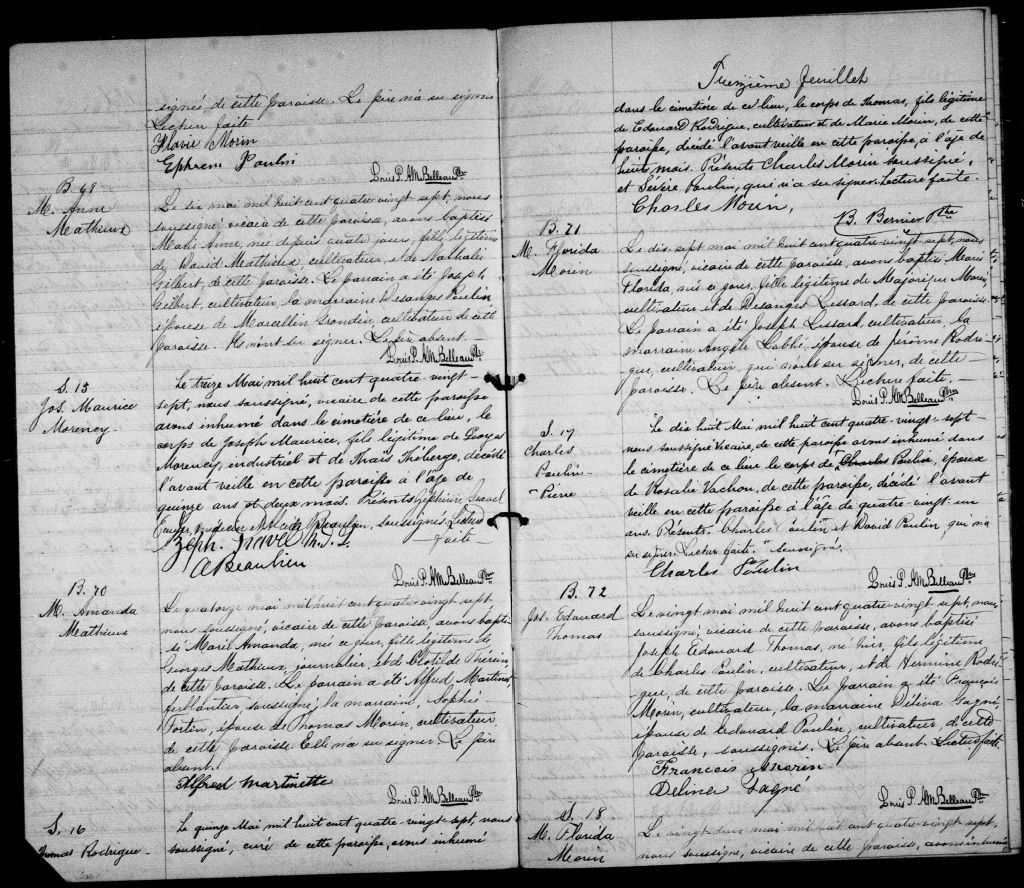 signés de cette paroisse. Le père n'a su signer
Lecture faite
Flavie Morin
Ephrem Poulin
Louis P. A. M. Belleau Ptre
B. 69
M. Anne
Mathieux
Le dix mai mil huit cent quatre vingt sept, nous
soussigné, vicaire de cette paroisse, avons baptisé
Marie Anne, née depuis quatre jours, fille légitime
de David Mathieux cultivateur, et de Nathalie
Gilbert, de cette paroisse. Le parrain a été Joseph
Gilbert, cultivateur, la marraine Desanges Poulin,
épouse de Marcellin Grondin, cultivateur de cette
paroisse. Ils n'ont su signer. Le père absent.
Louis P. A. M. Belleau Ptre
S. 15
Jos. Maurice
Morency
Le treize Mai mil huit cent quatre-vingt-
sept, nous soussigné, vicaire de cette paroisse
avons inhumé dans le cimetière de ce lieu, le
corps de Joseph Maurice, fils légitime de Georges
Morency, industriel et de Thaïs Théberge, décédé
l'avant veille en cette paroisse à l'âge de
quinze ans et deux mois. Présents Zéphirin Gravel
soussignés Lecture
faite
Zeph. Gravel M.D.
A Beaulieu
Louis P. A. M. Belleau Ptre
B. 70
M. Amanda
Mathieux
Le quatorze mai mil huit cent quatre vingt sept
nous soussigné, vicaire de cette paroisse, avons baptisé
Marie Amanda, née ce jour, fille légitime de
Georges Mathieux, journalier, et de Clotilde Therrien,
de cette paroisse. Le parrain a été Alfred Martinet,
ferblantier, soussigné, la marraine, Sophie
Fortin, épouse de Thomas Morin, cultivateur,
de cette paroisse. Elle n'a su signer. Le père
absent.
Alfred Martinette
Louis P. A. M. Belleau Ptre
S. 16
Thomas Rodrigue
Le quinze Mai mil huit cent quatre-vingt-sept, nous
soussigné, curé de cette paroisse, avons inhumé
feuillet
dans le cimetière de ce lieu, le corps de Thomas, fils légitime
de Edouard Rodrigue, cultivateur et de Marie Morin, de cette
paroisse, décédé l'avant veille en cette paroisse, à l'âge de
huit mois. Présents Charles Morin soussigné,
et Sévère Poulin, qui n'a su signer. Lecture faite.
Charles Morin,
B. Bernier Ptre
B. 71
M. Florida
Morin
Le dix sept mai mil huit cent quatre vingt sept, nous
soussigné, vicaire de cette paroisse, avons baptisé Marie
Florida, née ce jour, fille légitime de Majorique Morin,
cultivateur et de Desanges Lessard, de cette paroisse.
Le parrain a été Joseph Lessard, cultivateur, la
marraine Angèle Labbé, épouse de Jérôme Rodri-
gue, cultivateur, qui n'ont su signer, de cette
paroisse. Le père absent. Lecture faite.
Louis P. A. M. Belleau Ptre
S. 17
Charles
Poulin
Pierre
Le dix huit Mai mil huit cent quatre-vingt-sept
nous soussigné Vicaire, de cette paroisse avons inhumé dans
le cimetière de ce lieu le corps de Charles Poulin, époux
de Rosalie Vachon, de cette paroisse, décédé l'avant
veille en cette paroisse à l'âge de quatre-vingt-un
ans. Présents Charles Poulin et David Poulin, qui n'a
su signer. Lecture faite. soussigné.
Charles Poulin
Louis P. A. M. Belleau Ptre
B. 72
Jos. Edouard
Thomas
Le vingt mai mil huit cent quatre vingt sept, nous
soussigné, vicaire de cette paroisse, avons baptisé
Joseph Edouard Thomas, né hier, fils légitime
de Charles Poulin, cultivateur, et de Hermine Rodri-
gue, de cette paroisse. Le parrain a été François
Morin, cultivateur, la marraine Délina Gagné,
épouse de Edouard Poulin, cultivateur, de cette
paroisse, soussignés. Le père absent. Lecture faite.
Francois Morin
Delina Gagné
Louis P. A. M. Belleau Ptre
S. 18
M. Florida
Morin
Le vingt deux mai mil huit cent quatre vingt sept,
nous soussigné, vicaire de cette paroisse, avons inhumé